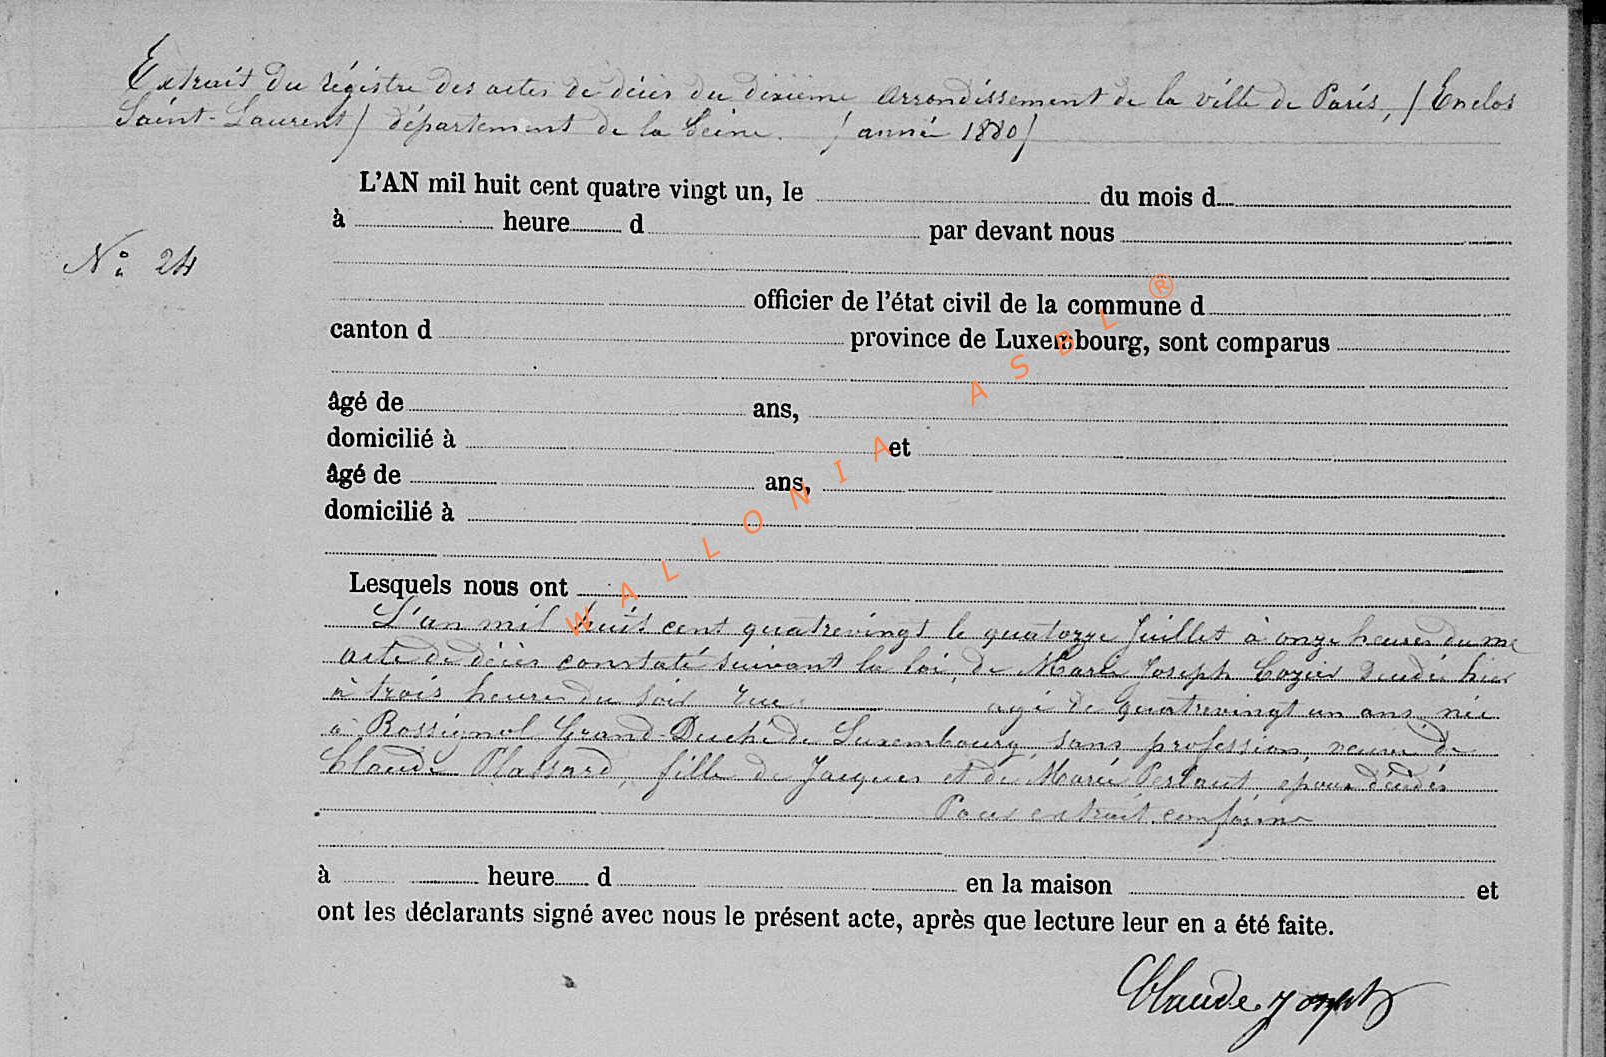 Extrait du régistre des actes de décès du dixième arrondissement de la ville de Paris, (Enclos
Saint-Laurent) département de la Seine. (année 1880)
L'AN mil huit cent quatre vingt un, le du mois d
à heure d par devant nous
N° 24
officier de l'état civil de la commune d
canton d province de Luxembourg, sont comparus
âgé de ans,
domicilié à et
âgé de ans,
domicilié à
Lesquels nous ont
L'an mil huit cent quatrevingt le quatorze Juillet à onze heures du
acte de décès constaté suivant la loi, de Marie Joseph Cozier décédée hier
à trois heures du soir rue agé de quatrevingt un ans née
à Rossignol Grand-Duché de Luxembourg, sans profession, veuve de
Claude Plassard, fille de Jacques et de Marie époux décédés
Pour extrait conforme
à heure d en la maison et
ont les déclarants signé avec nous le présent acte, après que lecture leur en a été faite.
Claude Joseph
WALLONIA ASBL ®